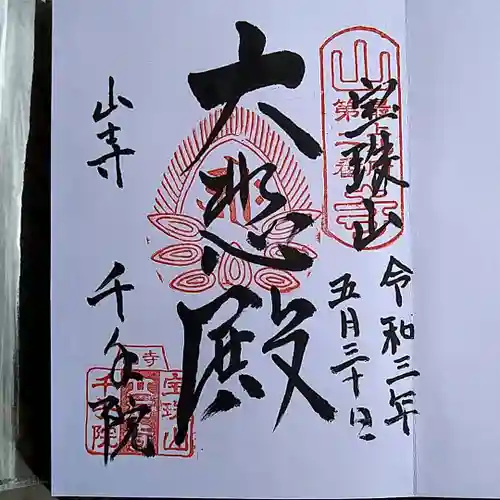 宝珠山
令和三年
五月三十日
大悲殿
山寺
千手院
山寺
第二番
寺
宝珠山
千手院